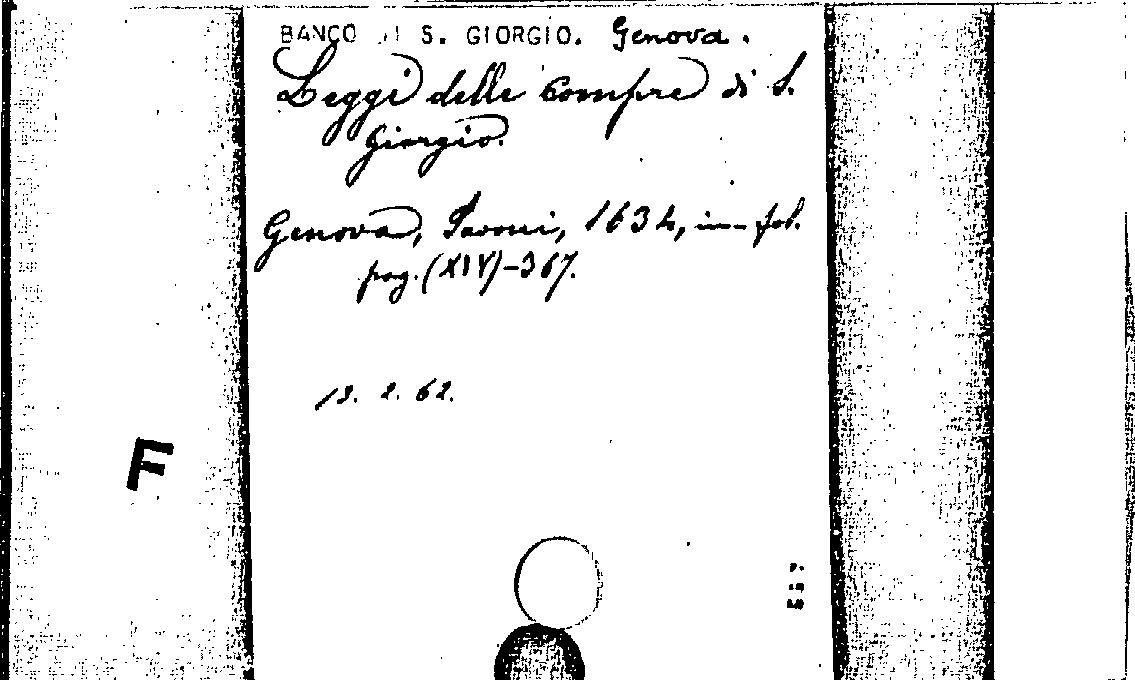 BANCO DI S. GIORGIO. Genova.
Leggi delle Compre di S.
Giorgio.
Genova, Pavoni, 1634, in-fol.
pag. (XIV)-367.
13. 2. 62.
F